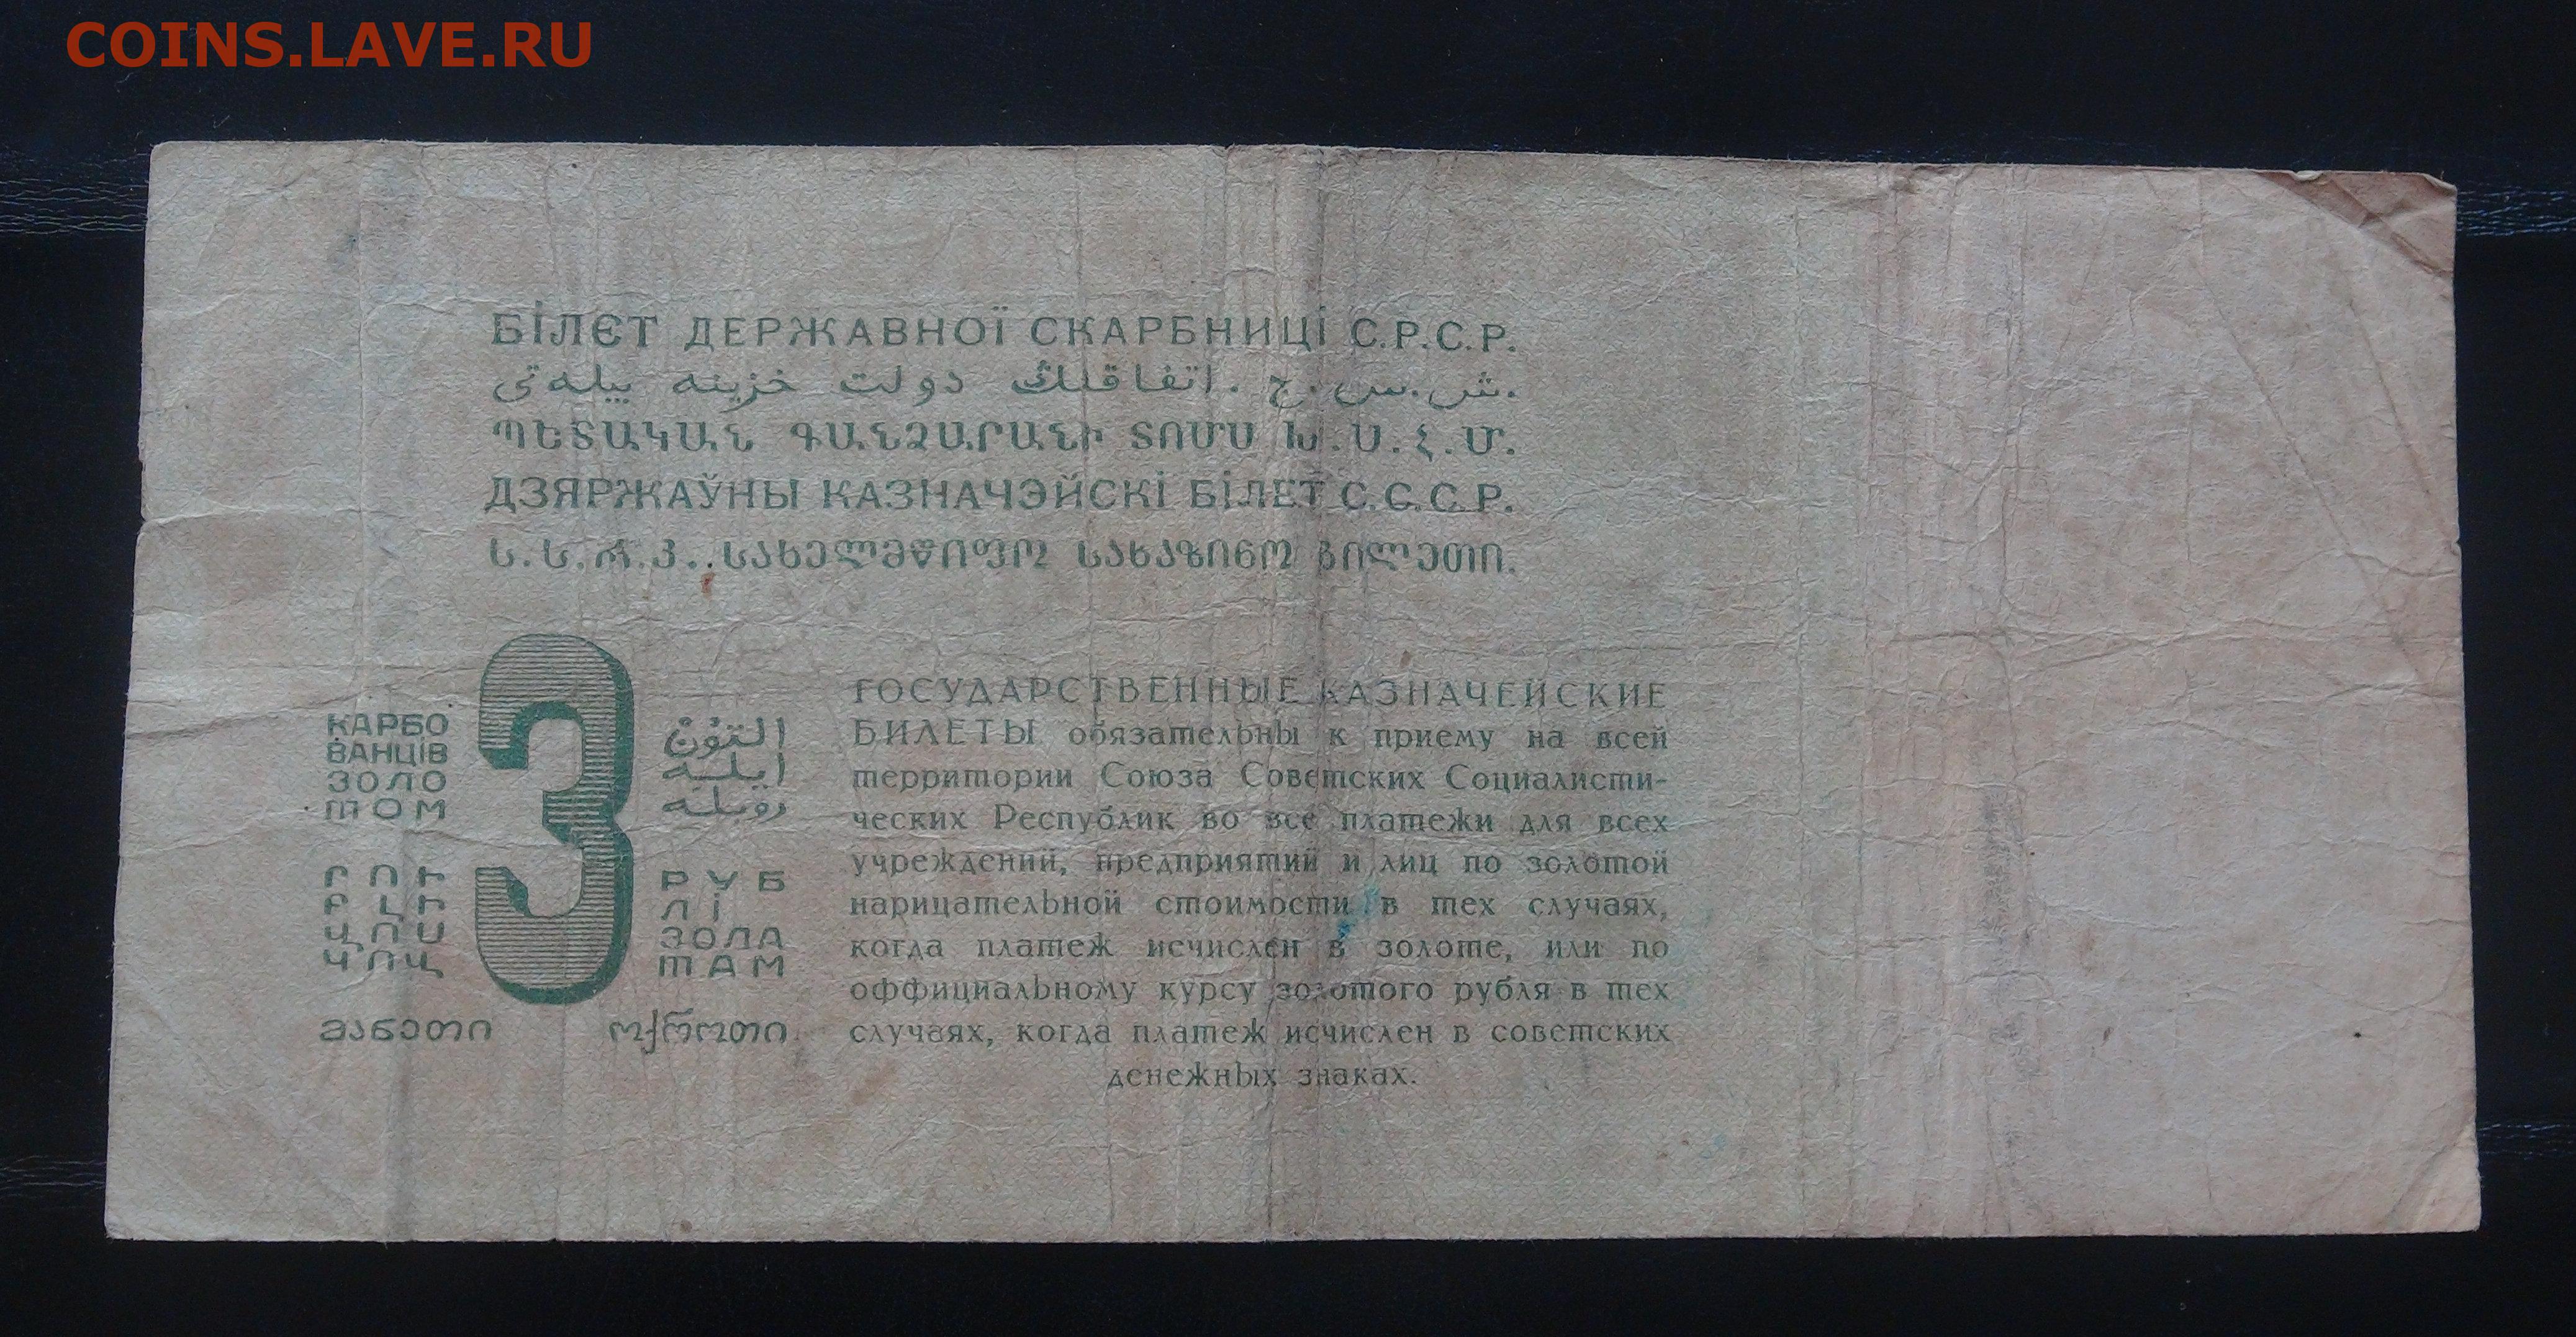 COINS.LAVE.RU
БІЛЄТ ДЕРЖАВНОЇ СКАРБНИЦІ С.Р.С.Р.
ش.س.ج. اتفاقلڭ دولت خزينه بيله‌تى
ՊԵՏԱԿԱՆ ԳԱՆՁԱՐԱՆԻ ՏՈՄՍ Խ.Ս.Հ.Մ.
ДЗЯРЖАЎНЫ КАЗНАЧЭЙСКІ БІЛЕТ С.С.С.Р.
ს.ს.რ.კ. სახელმწიფო სახაზინო ბილეთი.
3
КАРБО
ВАНЦІВ
ЗОЛО
ТОМ
التۇن
ايله
روبله
ՐՈՒ
ԲԼԻ
ՎՈՍ
ԿՈՎ
РУБ
ЛІ
ЗОЛА
ТАМ
მანეთი ოქროთი
ГОСУДАРСТВЕННЫЕ КАЗНАЧЕЙСКИЕ
БИЛЕТЫ обязательны к приему на всей
территории Союза Советских Социалисти-
ческих Республик во все платежи для всех
учреждений, предприятий и лиц по золотой
нарицательной стоимости в тех случаях,
когда платеж исчислен в золоте, или по
оффициальному курсу золотого рубля в тех
случаях, когда платеж исчислен в советских
денежных знаках.